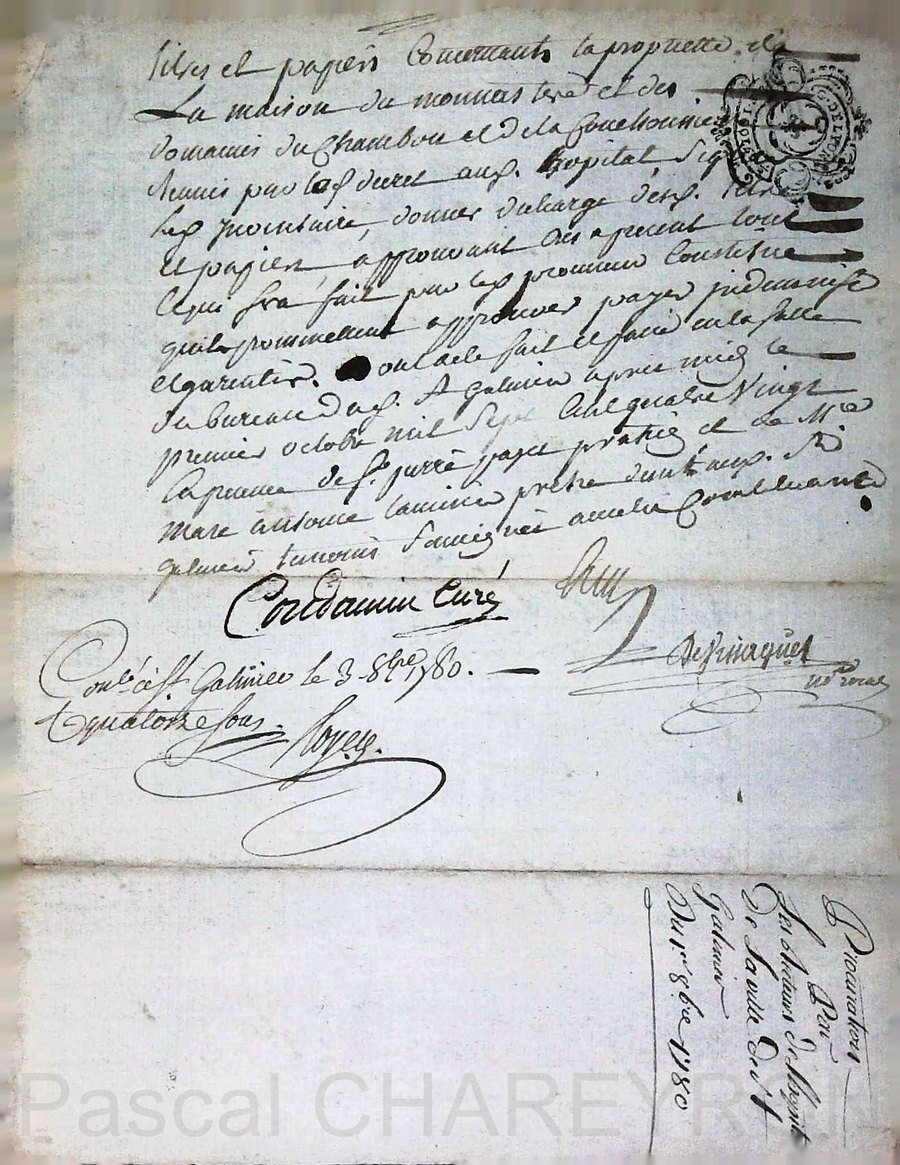 titres et papiers Concernants la propriette de
La maison du monnastere et des
domaines du Chambon et de la Couchonnier
Reunis par led. decret aud. hopital Signer
led. Inventaire, donner decharge desd. titres
et papiers, approuvant des a present tout
ce qui sera fait par led. procureur Constitué
quils promettent approuver payer indemniser
et garentir. Dont acte fait et passé en la Salle
du bureau dud. St Galmier apres midy le
premier octobre mil Sept Cent quatre Vingt
En presence de Sr. pierre payet praticien et de Mre
Marc antoine Camier pretre dud.
galmier temoins Soussignés avec les Comparants
Condamin Curé
Conlé à St Galmier le 3 8bre 1780.
Rx quatorze Sous. Royer.
nre royal
Procuration
Par
Les Recteurs de l'hopital
De La ville de St
Galmier
Du 1er 8bre 1780
Pascal CHAREYRON